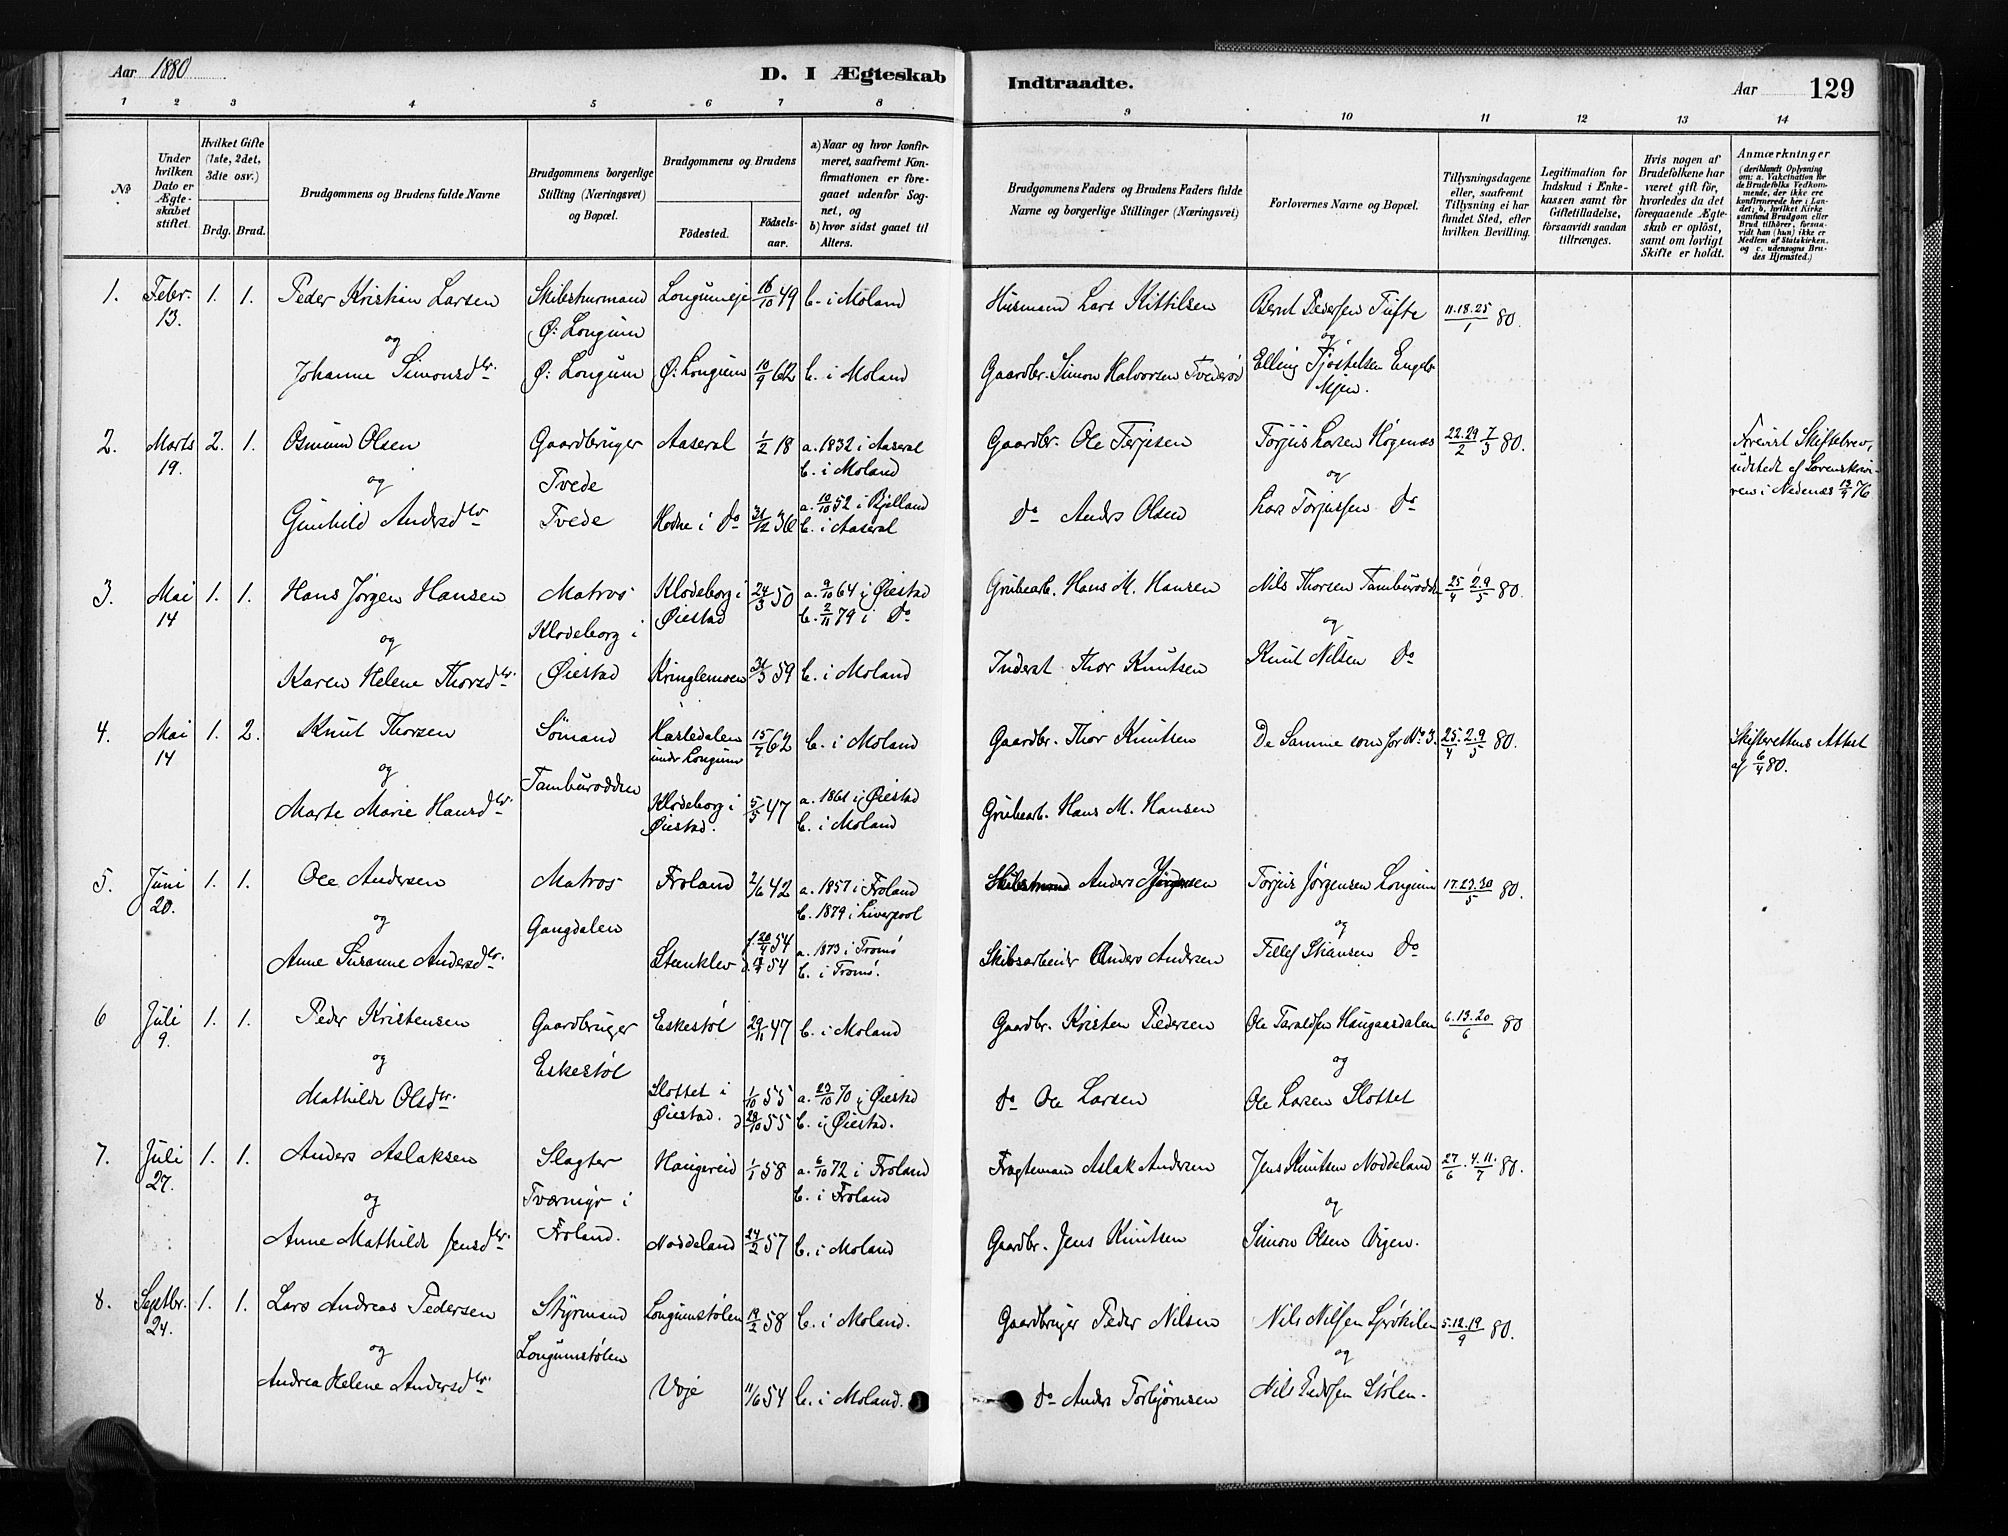 Aar 1880
D. I Ægteskab
Indtraadte.
Aar
129
1 2 3 4 5 6 7 8 9 10 11 12 13 14
No
Under hvilken Dato er Ægteskabet stiftet.
Hvilket Gifte (1ste, 2det, 3die osv.)
Brdg. Brud.
Brudgommens og Brudens fulde Navne
Brudgommens borgerlige Stilling (Næringsvei) og Bopæl.
Brudgommens og Brudens
Fødested. Fødselsaar.
a) Naar og hvor konfirmeret, saafremt Konfirmationen er foregaaet udenfor Sognet, og
b) hvor sidst gaaet til Alters.
Brudgommens Faders og Brudens Faders fulde Navne og borgerlige Stillinger (Næringsvei)
Forlovernes Navne og Bopæl.
Tillysningsdagene eller, saafremt Tillysning ei har fundet Sted, efter hvilken Bevilling.
Legitimation for Indskud i Enkekassen samt for Giftetilladelse, forsaavidt saadan tiltrænges.
Hvis nogen af Brudefolkene har været gift før, hvorledes da det foregaaende Ægteskab er opløst, samt om lovligt Skifte er holdt.
Anmærkninger
(deriblandt Oplysning om: a. Vakcination for de Brudefolks Vedkommende, der ikke ere konfirmerede her i Landet; b. hvilket Kirkesamfund Brudgom eller Brud tilhører, forsaavidt han (hun) ikke er Medlem af Statskirken, og c. udensogns Brudes Hjemsted.)
1. Febr. 13. 1. 1. Peder Kristian Larsen Skibsturmand Ø: Longum Longumeje 16/10 49 b. i Moland Husmand Lars Kittilsen Bernt Pedersen Tufte 11.18.25/1 80.
og og
Johanne Simonsdtr. Ø: Longum Ø: Longum 10/9 62 b. i Moland Gaardbr. Simon Halvorsen Tvederød Elling Tjøstelsen Engelsmjen.
2. Marts 19. 2. 1. Osmun Olsen Gaardbruger Tvede Aaseral 1/2 18 a. 1832 i Aaseral b. i Moland Gaardbr. Ole Terjesen Torjus Larsen Høgenæs 22.29/2 7/3 80. Forevist Skiftebrev, udstedt af Sorenskriveren i Nedenæs 13/9 76
og og
Gunhild Andersdtr Tvede Hodne i do 31/12 36 a. 10/10 52 i Bjelland b. i Aaseral do Anders Olsen Lars Torjussen do
3. Mai 14 1. 1. Hans Jørgen Hansen Matros Klodeborg i Øiestad Klodeborg i Øiestad 24/3 50 a. 9/10 64 i Øiestad b. 2/11 79 i do Grubearb. Hans M. Hansen Nils Thorsen Tamburodden 25/4 2.9/5 80.
og og
Karen Helene Thorsdtr. Kringlemoen 31/3 59 b. i Moland Inderst Thor Knutsen Knut Nilsen do
4. Mai 14 1. 2. Knut Thorsen Sömand Tamburodden Hasledalen under Longum 15/7 62 b. i Moland Gaardbr. Thor Knutsen De Samme som for No 3. 25/4 2.9/5 80. Skifterettens Attest af 6/4 80.
og
Marte Marie Hansdtr. Klodeborg i Øiestad. 5/5 47 a. 1861 i Øiestad b. i Moland Grubearb. Hans M. Hansen
5. Juni 20. 1. 1. Ole Andersen Matros Gangdalen Froland 2/6 42 a. 1857 i Froland b. 1879 i Liverpool Anders Torjus Jørgensen Longum 17.23.30/5 80.
og og
Anne Susanne Andersdtr. Stenklev f. 20/4 54 a. 1873 i Tromø b. i Tromø. Skibsarbeider Anders Andersen Tillef do
6 Juli 9. 1. 1. Peder Kristensen Gaardbruger Eskestøl Eskestøl 29/11 47 b. i Moland Gaardbr. Kristen Pedersen Ole Taraldsen Haugaasdalen 6.13.20/6 80
og og
Mathilde Olsdtr. Slottet i Øiestad. 1/10 55 d 28/10 55 a. 23/10 70 i Øiestad b. i Øiestad. do Ole Larsen Ole Larsen Slottet
7. Juli 27. 1. 1. Anders Aslaksen Slagter Tværmyr i Froland. Haugereid 1/1 58 a. 6/10 72 i Froland b. i Froland Fragtemand Aslak Andersen Jens Knutsen Noddeland 27/6. 4.11./7 80.
og og
Anne Mathilde Jensdtr. Noddeland 24/2 57 b. i Moland Gaardbr. Jens Knutsen Simon Olsen Vigen.
8. Septbr. 24. 1. 1. Lars Andreas Pedersen Styrmand Longumstølen Longumstølen 19/2 58 b. i Moland. Gaardbruger Peder Nilsen Nils Nilssen Sprøkilen 5.12.19/9 80.
og og
Andrea Helene Andersdtr Voje 11/6 54 b. i Moland. do Anders Torbjørnsen Nils Pedersen Stølen.